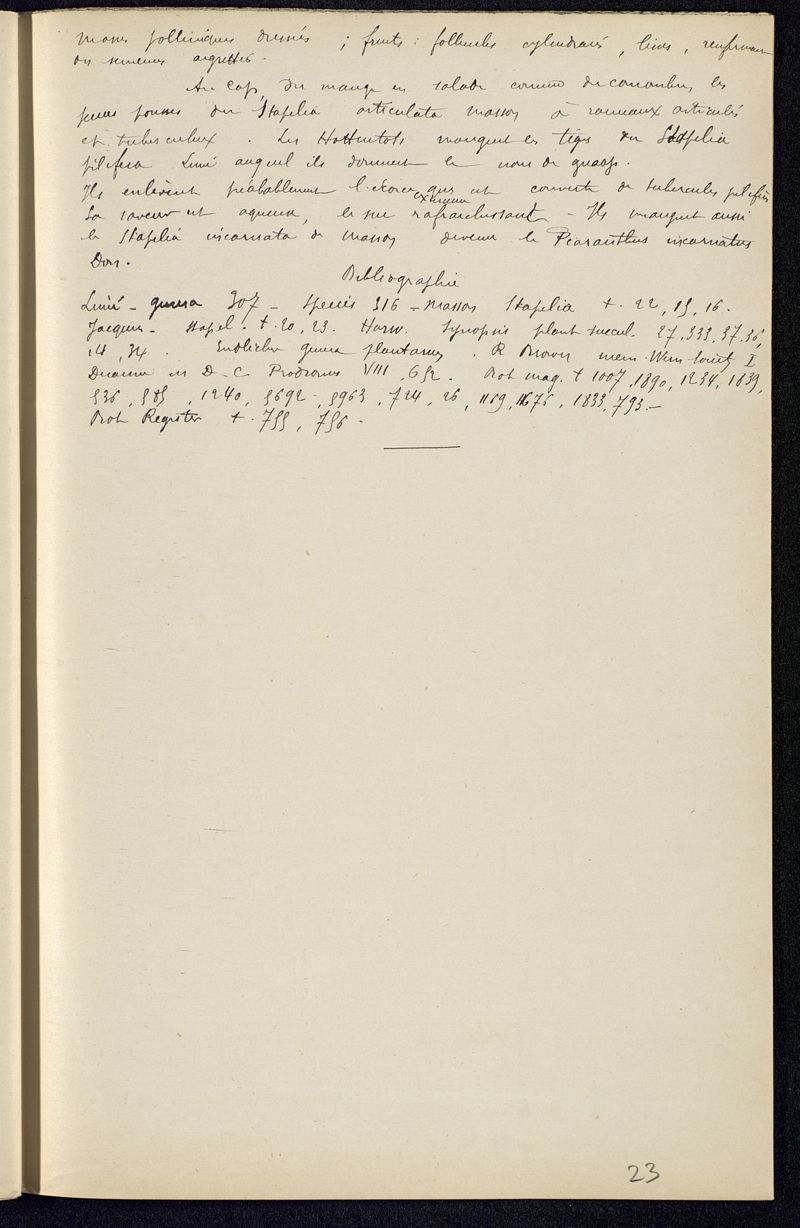 masses polliniques dressées ; fruits : follicules cylindracés, lisses, renfermant
des semences aigrettées.
Au Cap, on mange en salade comme des concombres, les
jeunes pousses du Stapelia articulata Masson à rameaux articulés
et tuberculeux. Les Hottentots mangent les tiges du Stapelia
pilifera Linné auquel ils donnent le nom de guaap.
Ils enlèvent préalablement l'écorce extérieure qui est couverte de tubercules pilifères
La saveur est aqueuse, le suc rafraichissant - Ils mangent aussi
le Stapelia incarnata de Masson devenu le Piaranthus incarnatus
Don.
Bibliographie
Linné - genera 307 - Species 316 - Masson Stapelia t. 22, 15, 16.
Jacquin - Stapel. t. 20, 23. Haw. Synopsis plant succul. 27, 333, 37, 36,
14, 34. Endlicher genera plantarum. R Brown mem. Wern. Society I
Decaisne in D-C Prodromus VIII, 652. Bot mag. t 1007, 1890, 1234, 1839,
536, 585, 1240, 5692, 5963, 724, 26, 1169, 1676, 1833, 793.-
Bot Register t. 755, 756.
23